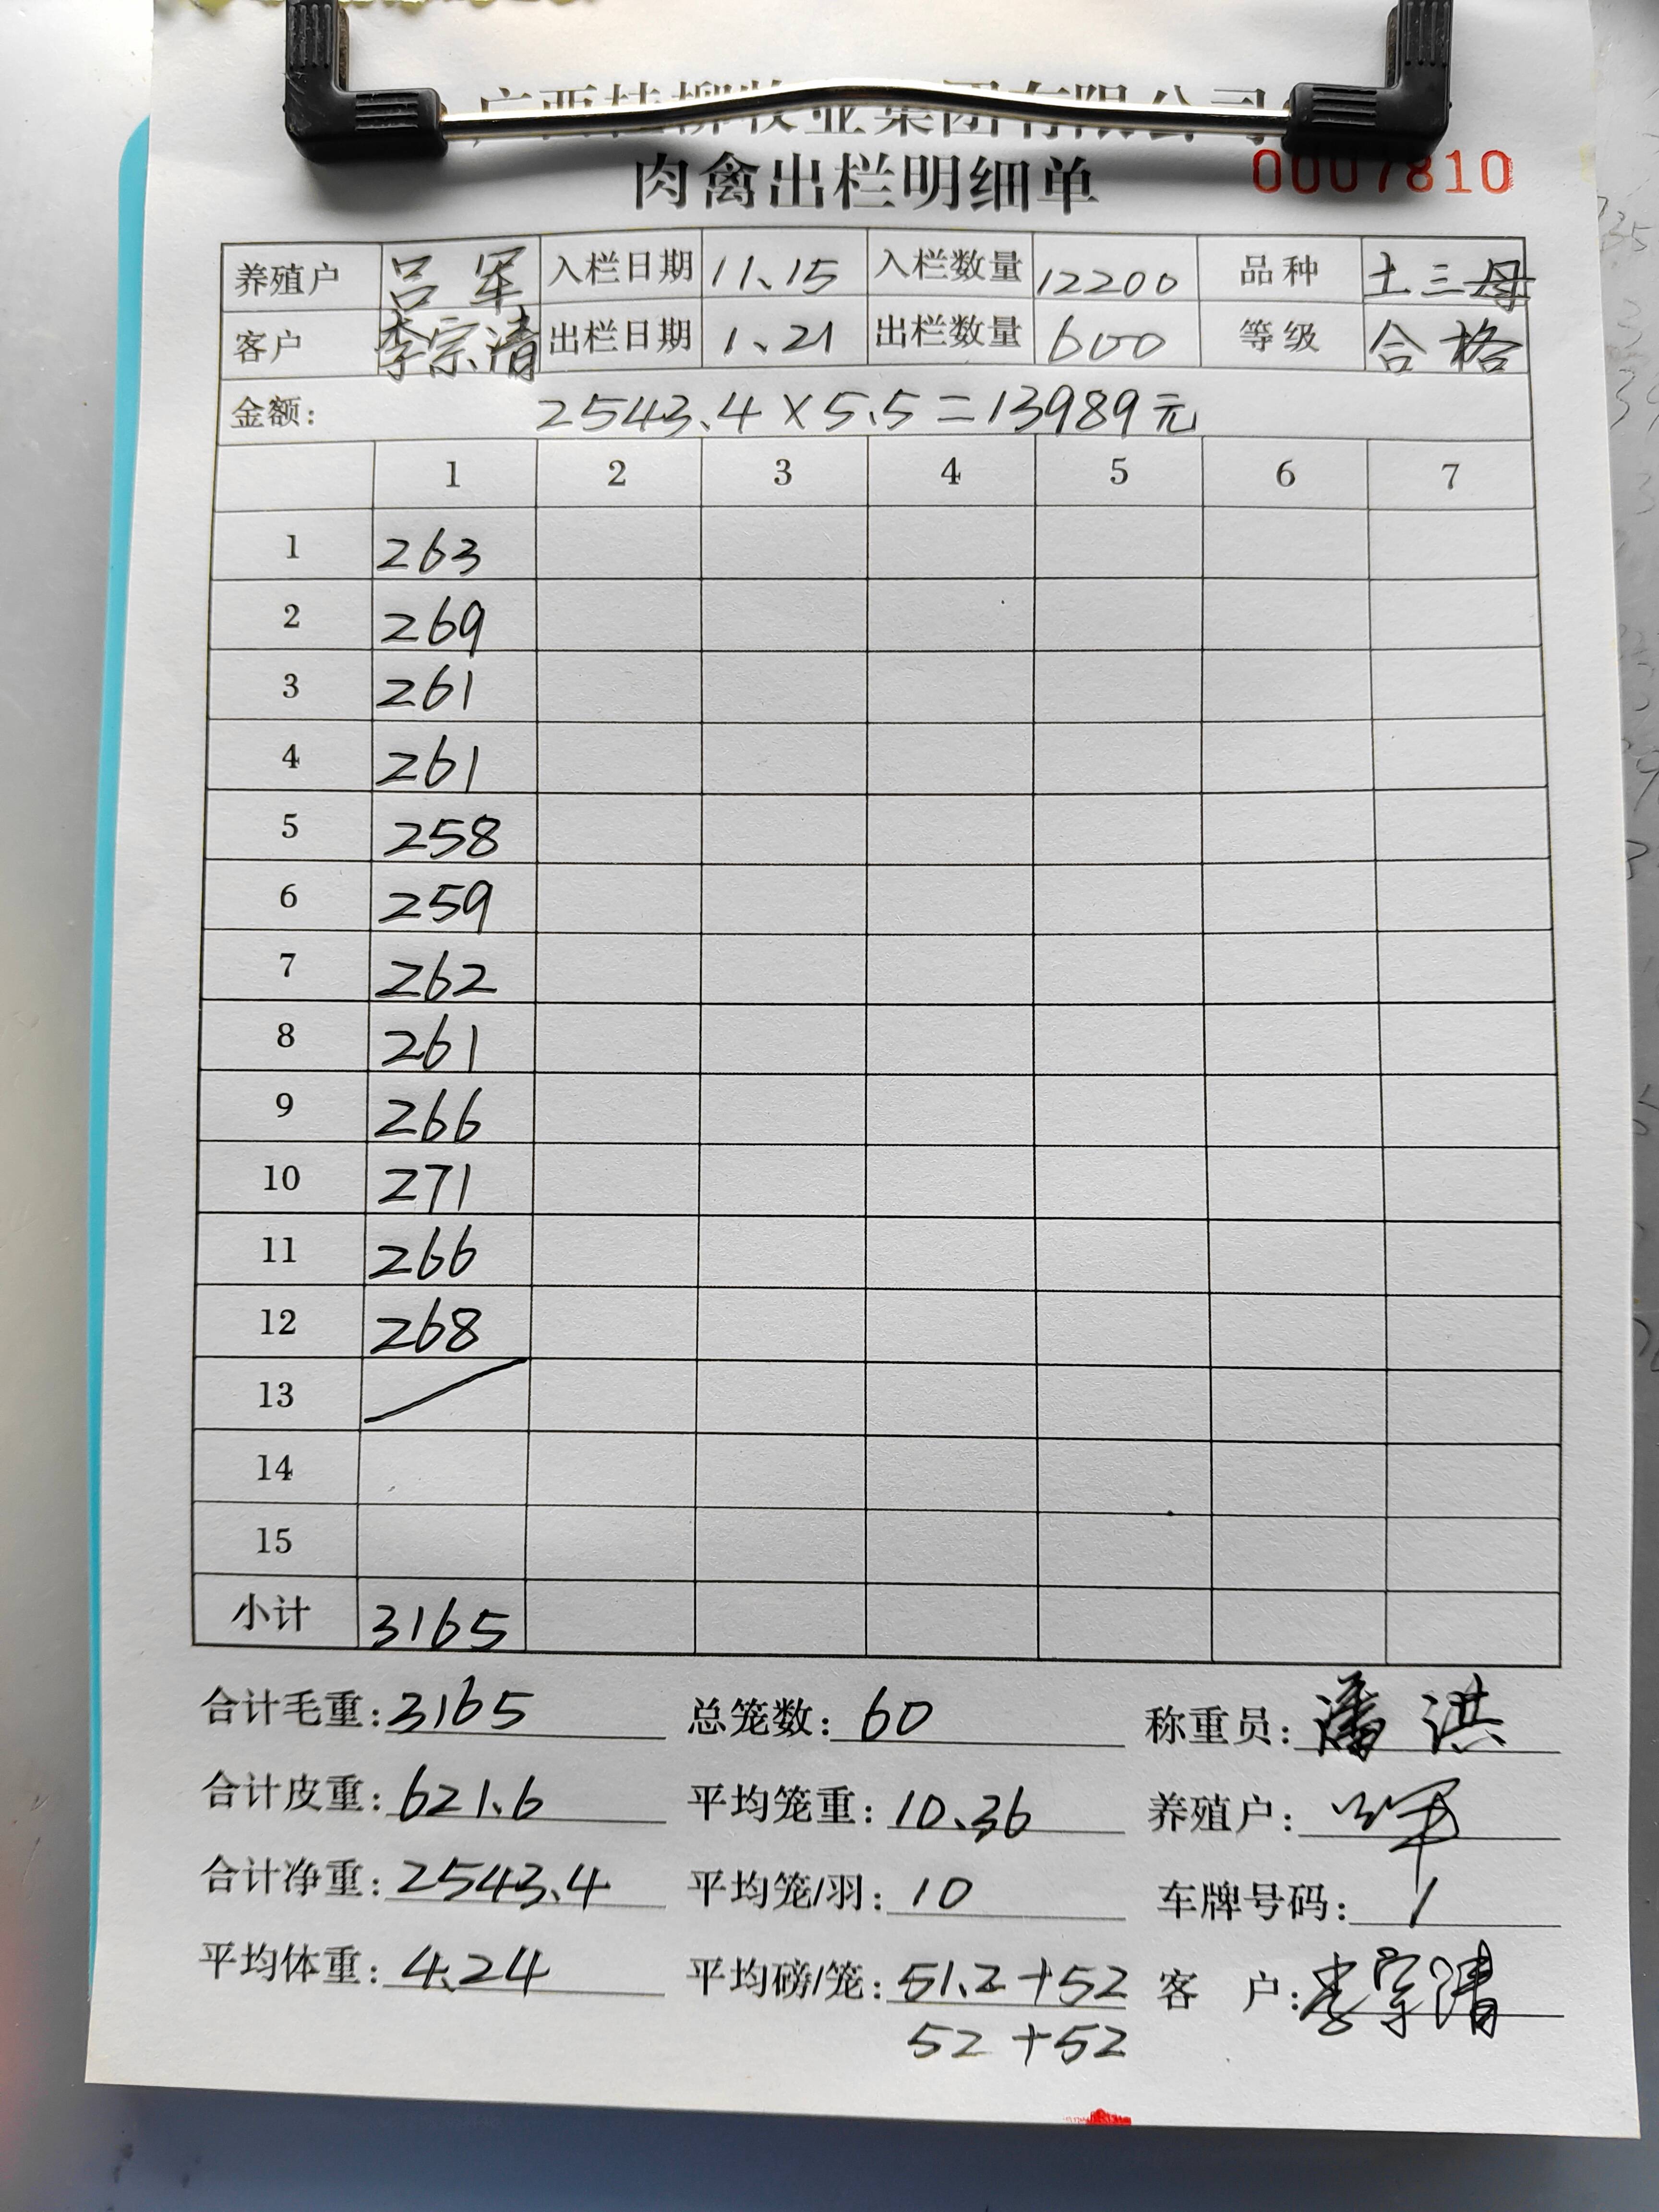 广西桂柳牧业集团有限公司
肉禽出栏明细单 0007810
养殖户 吕军 入栏日期 11、15 入栏数量 12200 品种 土三母
客户 李宗清 出栏日期 1、21 出栏数量 600 等级 合格
金额: 2543.4×5.5=13989元
1 2 3 4 5 6 7
1 263
2 269
3 261
4 261
5 258
6 259
7 262
8 261
9 266
10 271
11 266
12 268
13
14
15
小计 3165
合计毛重:3165 总笼数:60 称重员:潘洪
合计皮重:621.6 平均笼重:10.36 养殖户:吕军
合计净重:2543.4 平均笼/羽:10 车牌号码:/
平均体重:4.24 平均磅/笼:51.2+52 客 户:李宗清
52+52